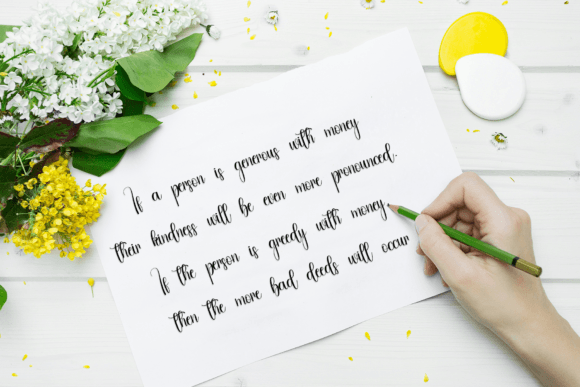 If a person is generous with money
their kindness will be even more pronounced.
If the person is greedy with money,
then the more bad deeds will occur